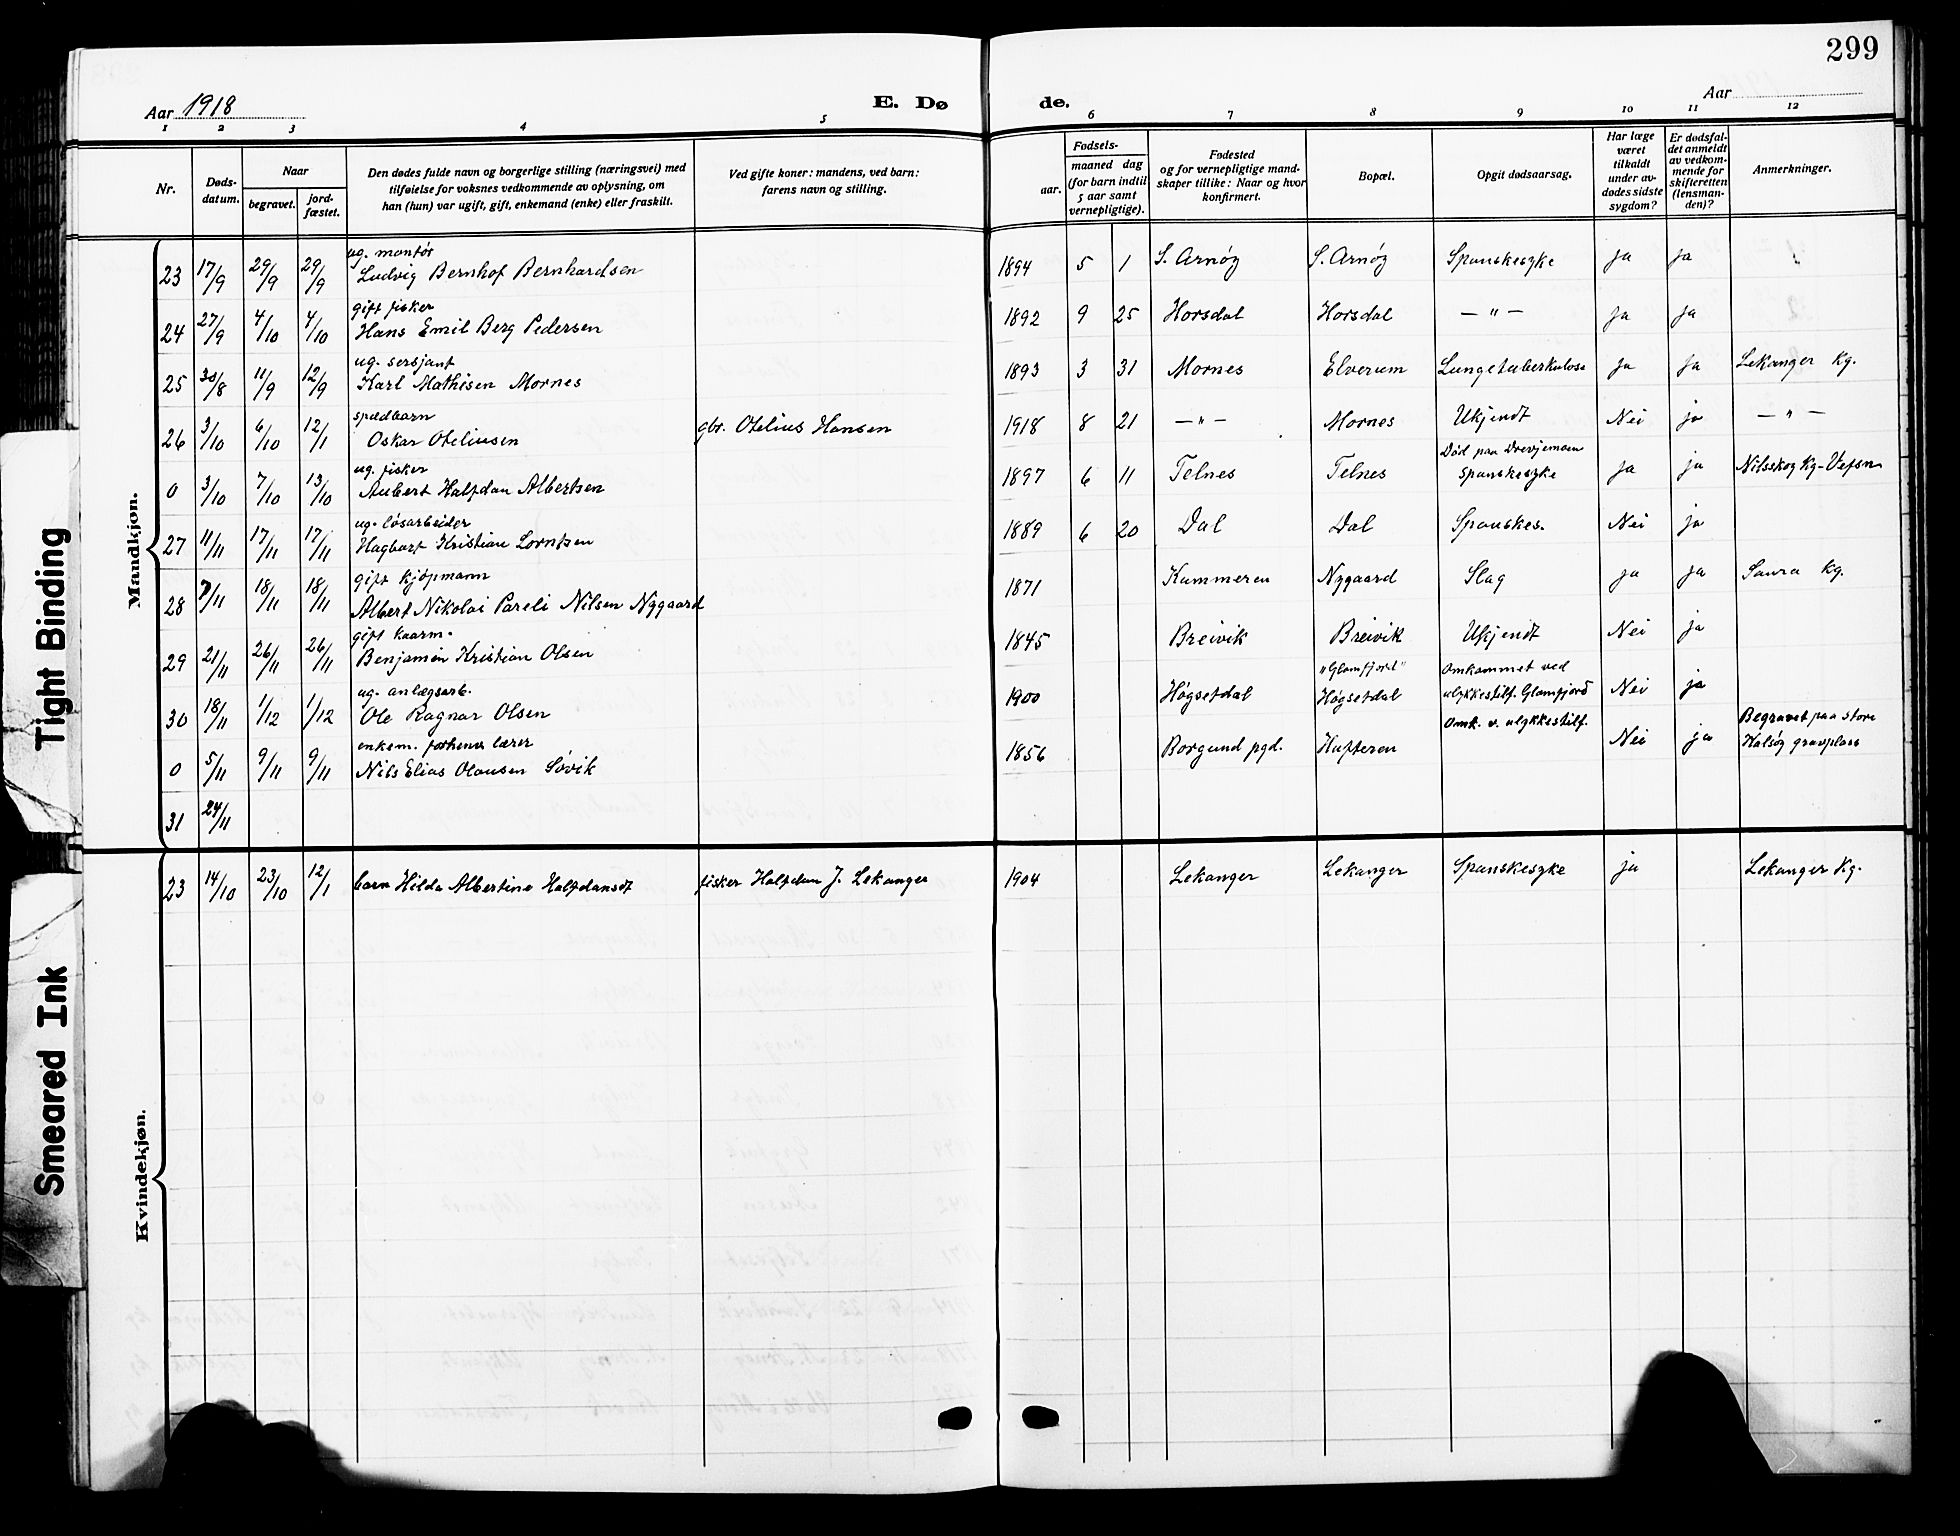 299
Aar 1918
E. Dø de.
Aar
1 2 3 4 5 6 7 8 9 10 11 12
Nr.
Døds-
datum.
Naar
begravet.
jord-
fæstet.
Den dødes fulde navn og borgerlige stilling (næringsvei) med
tilføielse for voksnes vedkommende av oplysning, om
han (hun) var ugift, gift, enkemand (enke) eller fraskilt.
Ved gifte koner: mandens, ved barn:
farens navn og stilling.
Fødsels-
aar.
maaned dag
(for barn indtil
5 aar samt
vernepligtige).
Fødested
og for vernepligtige mand-
skaper tillike: Naar og hvor
konfirmert.
Bopæl.
Opgit dødsaarsag.
Har læge
været
tilkaldt
under av-
dødes sidste
sygdom?
Er dødsfal-
det anmeldt
av vedkom-
mende for
skifteretten
(lensman-
den)?
Anmerkninger.
Mandkjøn.
ug. montør
23 17/9 29/9 29/9 Ludvig Bernhof Bernhardsen 1894 5 1 S. Arnøy S. Arnøy Spanskesyke ja ja
gift fisker
24 27/9 4/10 4/10 Hans Emil Berg Pedersen 1892 9 25 Horsdal Horsdal — " — ja ja
ug. sersjant
25 30/8 11/9 12/9 Karl Mathisen Mornes 1893 3 31 Mornes Elverum Lungetuberkulose ja ja Lekanger Kg.
spædbarn
26 3/10 6/10 12/1 Oskar Oteliusen gbr. Otelius Hansen 1918 8 21 — " — Mornes Ukjendt Nei ja — " —
ug. fisker Død paa Drevjemoen
0 3/10 7/10 13/10 Aubert Halfdan Albertsen 1897 6 11 Telnes Telnes Spanskesyke ja ja Nilsskog Kg - Vefsn
ug. løsarbeider
27 11/11 17/11 17/11 Hagbart Kristian Lorntsen 1889 6 20 Dal Dal Spanskes. Nei ja
gift kjøpmann
28 7/11 18/11 18/11 Albert Nikolai Pareli Nilsen Nygaard 1871 Kammeren Nygaard Slag ja ja Saura Kg.
gift kaarm.
29 21/11 26/11 26/11 Benjamin Kristian Olsen 1845 Breivik Breivik Ukjendt Nei ja
ug. anlægsarb. "Glomfjord" Omkommet ved
30 18/11 1/12 1/12 Ole Ragnar Olsen 1900 Høgsetdal Høgsetdal ulykkestilf. Glomfjord Nei ja
enkem. forhenv. lærer Omk. v. ulykkestilf. Begravet paa store
0 5/11 9/11 9/11 Nils Elias Olausen Søvik 1856 Borgund pgd. Hufteren Nei ja Kalsøy gravplass
31 24/11
Kvindekjøn.
23 14/10 23/10 12/1 barn Hilda Albertine Halfdansdt fisker Halfdan J. Lekanger 1904 Lekanger Lekanger Spanskesyke ja Lekanger Kg.
Tight Binding
Smeared Ink